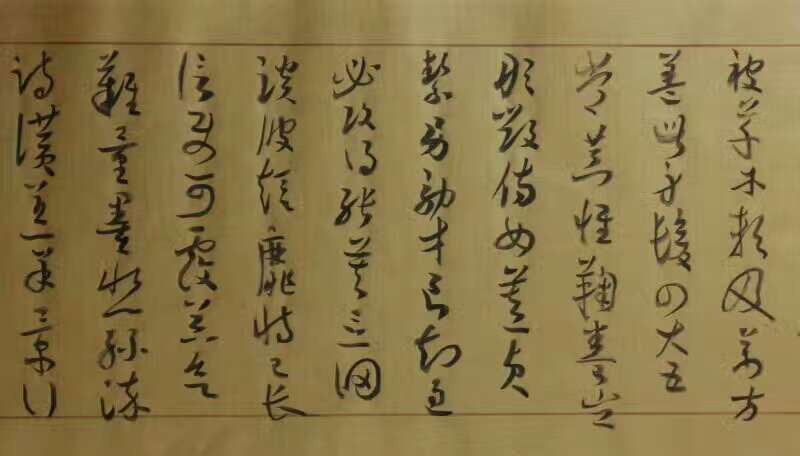 被草木賴及萬方
蓋此身髮四大五
常恭惟鞠養豈
敢毀傷女慕貞
絜男效才良知過
必改得能莫忘罔
談彼短靡恃己長
信使可覆器欲
難量墨悲絲染
詩讚羔羊景行